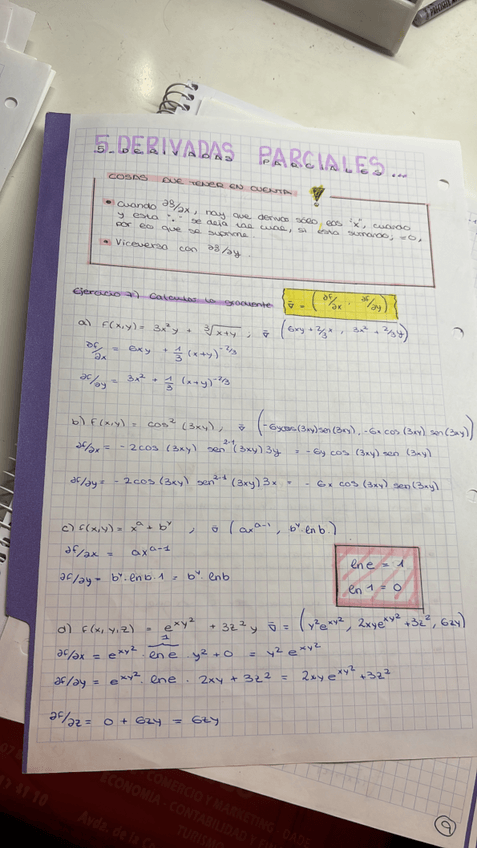 5. DERIVADAS PARCIALES...
COSAS QUE TENER EN CUENTA
• cuando ∂f/∂x, hay que derivar sólo las "x", cuando
y esta "·" se deja tal cual, si esta sumando, =0,
por lo que se suprime.
• Viceversa con ∂f/∂y
Ejercicio 7) Calcular la gradiente ∇ = (∂f/∂x, ∂f/∂y)
a) F(x,y) = 3x²y + ∛x+y, ∇ (6xy + 2/3 x, 3x² + 2/3 y)
∂f/∂x = 6xy + 1/3 (x+y)^-2/3
∂f/∂y = 3x² + 1/3 (x+y)^-2/3
b) F(x,y) = cos² (3xy), ∇ (-6ycos(3xy)sen(3xy), -6x cos (3xy) sen (3xy))
∂f/∂x = -2cos (3xy) sen^2-1 (3xy) 3y = -6y cos (3xy) sen (3xy)
∂f/∂y = -2cos (3xy) sen^2-1 (3xy) 3x = -6x cos (3xy) sen (3xy)
c) F(x,y) = x^a + b^y, ∇ (ax^a-1, b^y lnb.)
∂f/∂x = ax^a-1
∂f/∂y = b^y · lnb · 1 = b^y · lnb
ln e = 1
ln 1 = 0
d) F(x,y,z) = e^xy² + 3z²y ∇ = (y²e^xy², 2xye^xy² + 3z², 6zy)
1
∂f/∂x = e^xy² · ln e · y² + 0 = y² e^xy²
∂f/∂y = e^xy² · ln e · 2xy + 3z² = 2xy e^xy² + 3z²
∂f/∂z = 0 + 6zy = 6zy
COMERCIO Y MARKETING
ECONOMIA - CONTABILIDAD Y
Avda. de la
9